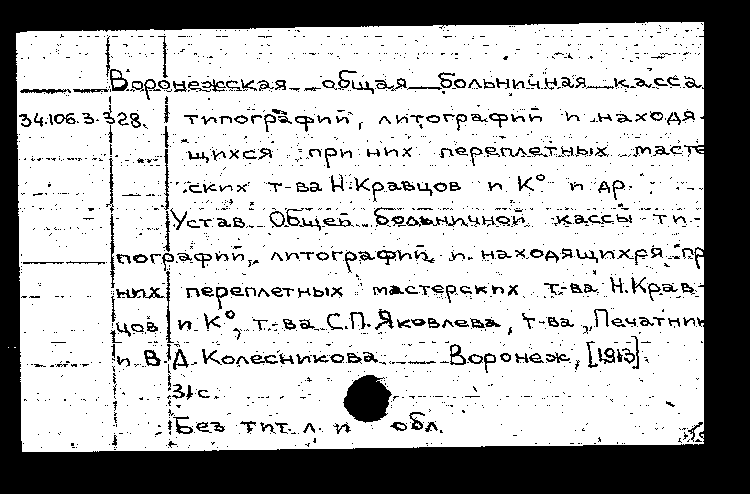 Воронежская общая больничная касса
34.106.3.328. типографий, литографий и находя-
щихся при них переплетных масте
ских т-ва Н.Кравцов и К° и др.
Устав Общей больничной кассы ти-
пографий, литографий и находящихся пр
них переплетных мастерских т-ва Н.Крав-
цов и К°, т-ва С.П.Яковлева, т-ва „Печатник
и В.Д.Колесникова Воронеж, [1913].
31 с.
Без тит. л. и обл.